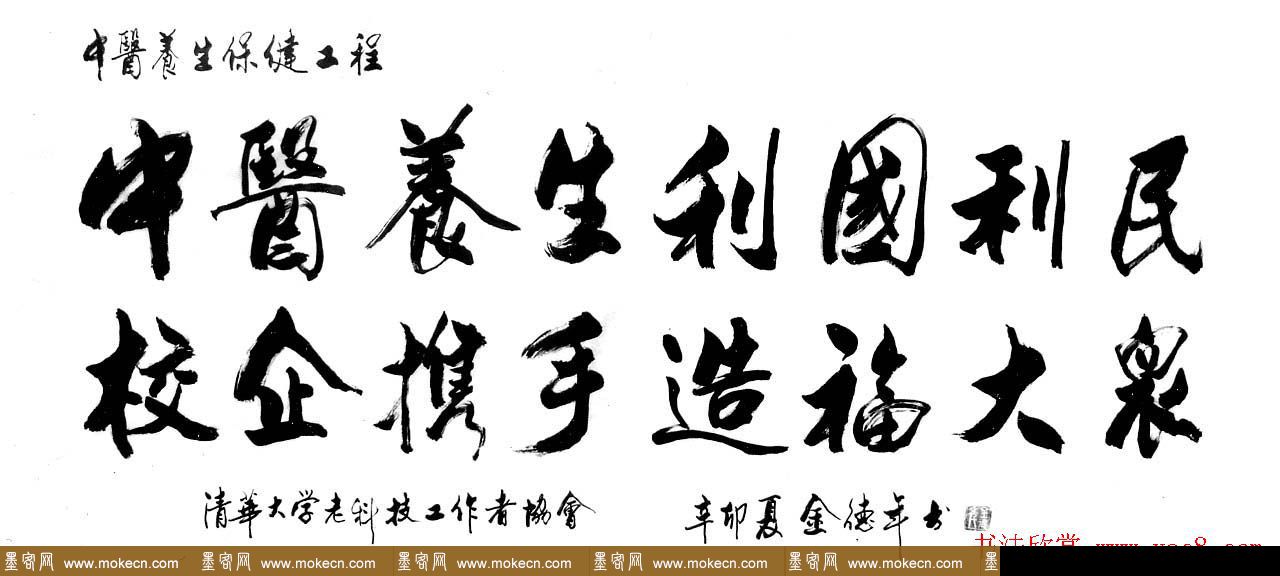 中醫養生保健工程
中醫養生利國利民
校企攜手造福大衆
清華大学老科技工作者協會
辛卯夏 金德年书
书法欣赏 www.yac8.com
墨客网 www.mokecn.com 墨客网 www.mokecn.com 墨客网 www.mokecn.com 墨客网 www.mokecn.com 墨客网 www.mokecn.com